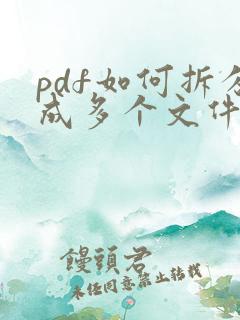 pdf如何拆分
成多个文件
饅頭君
未任同意禁止转载